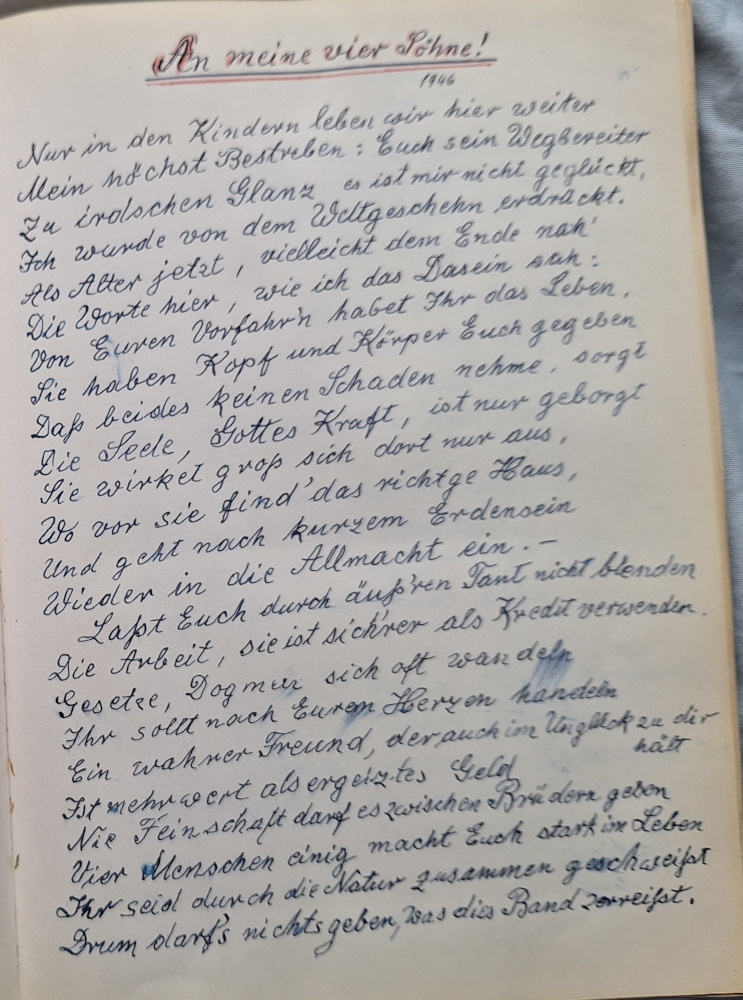 An meine vier Söhne!
1946
Nur in den Kindern leben wir hier weiter
Mein höchst Bestreben: Euch sein Wegbereiter
Zu irdschen Glanz es ist mir nicht geglückt,
Ich wurde von dem Weltgeschehn erdrückt.
Als Alter jetzt, vielleicht dem Ende nah'
Die Worte hier, wie ich das Dasein sah:
Von Euren Vorfahr'n habet Ihr das Leben,
Sie haben Kopf und Körper Euch gegeben
Daß beides keinen Schaden nehme, sorgt
Die Seele, Gottes Kraft, ist nur geborgt
Sie wirket groß sich dort nur aus,
Wo vor sie find' das richtge Haus,
Und geht nach kurzem Erdensein
Wieder in die Allmacht ein. –
Laßt Euch durch äuß'ren Tant nicht blenden
Die Arbeit, sie ist sich'rer als Kredit verwenden.
Gesetze, Dogmen sich oft wandeln
Ihr sollt nach Euren Herzen handeln
Ein wahrer Freund, der auch im Unglück zu dir
hält
Ist mehr wert als ergeiztes Geld
Nie Feinschaft darf es zwischen Brüdern geben
Vier Menschen einig macht Euch stark im Leben
Ihr seid durch die Natur zusammen geschweißt
Drum darf's nichts geben, was dies Band zerreißt.